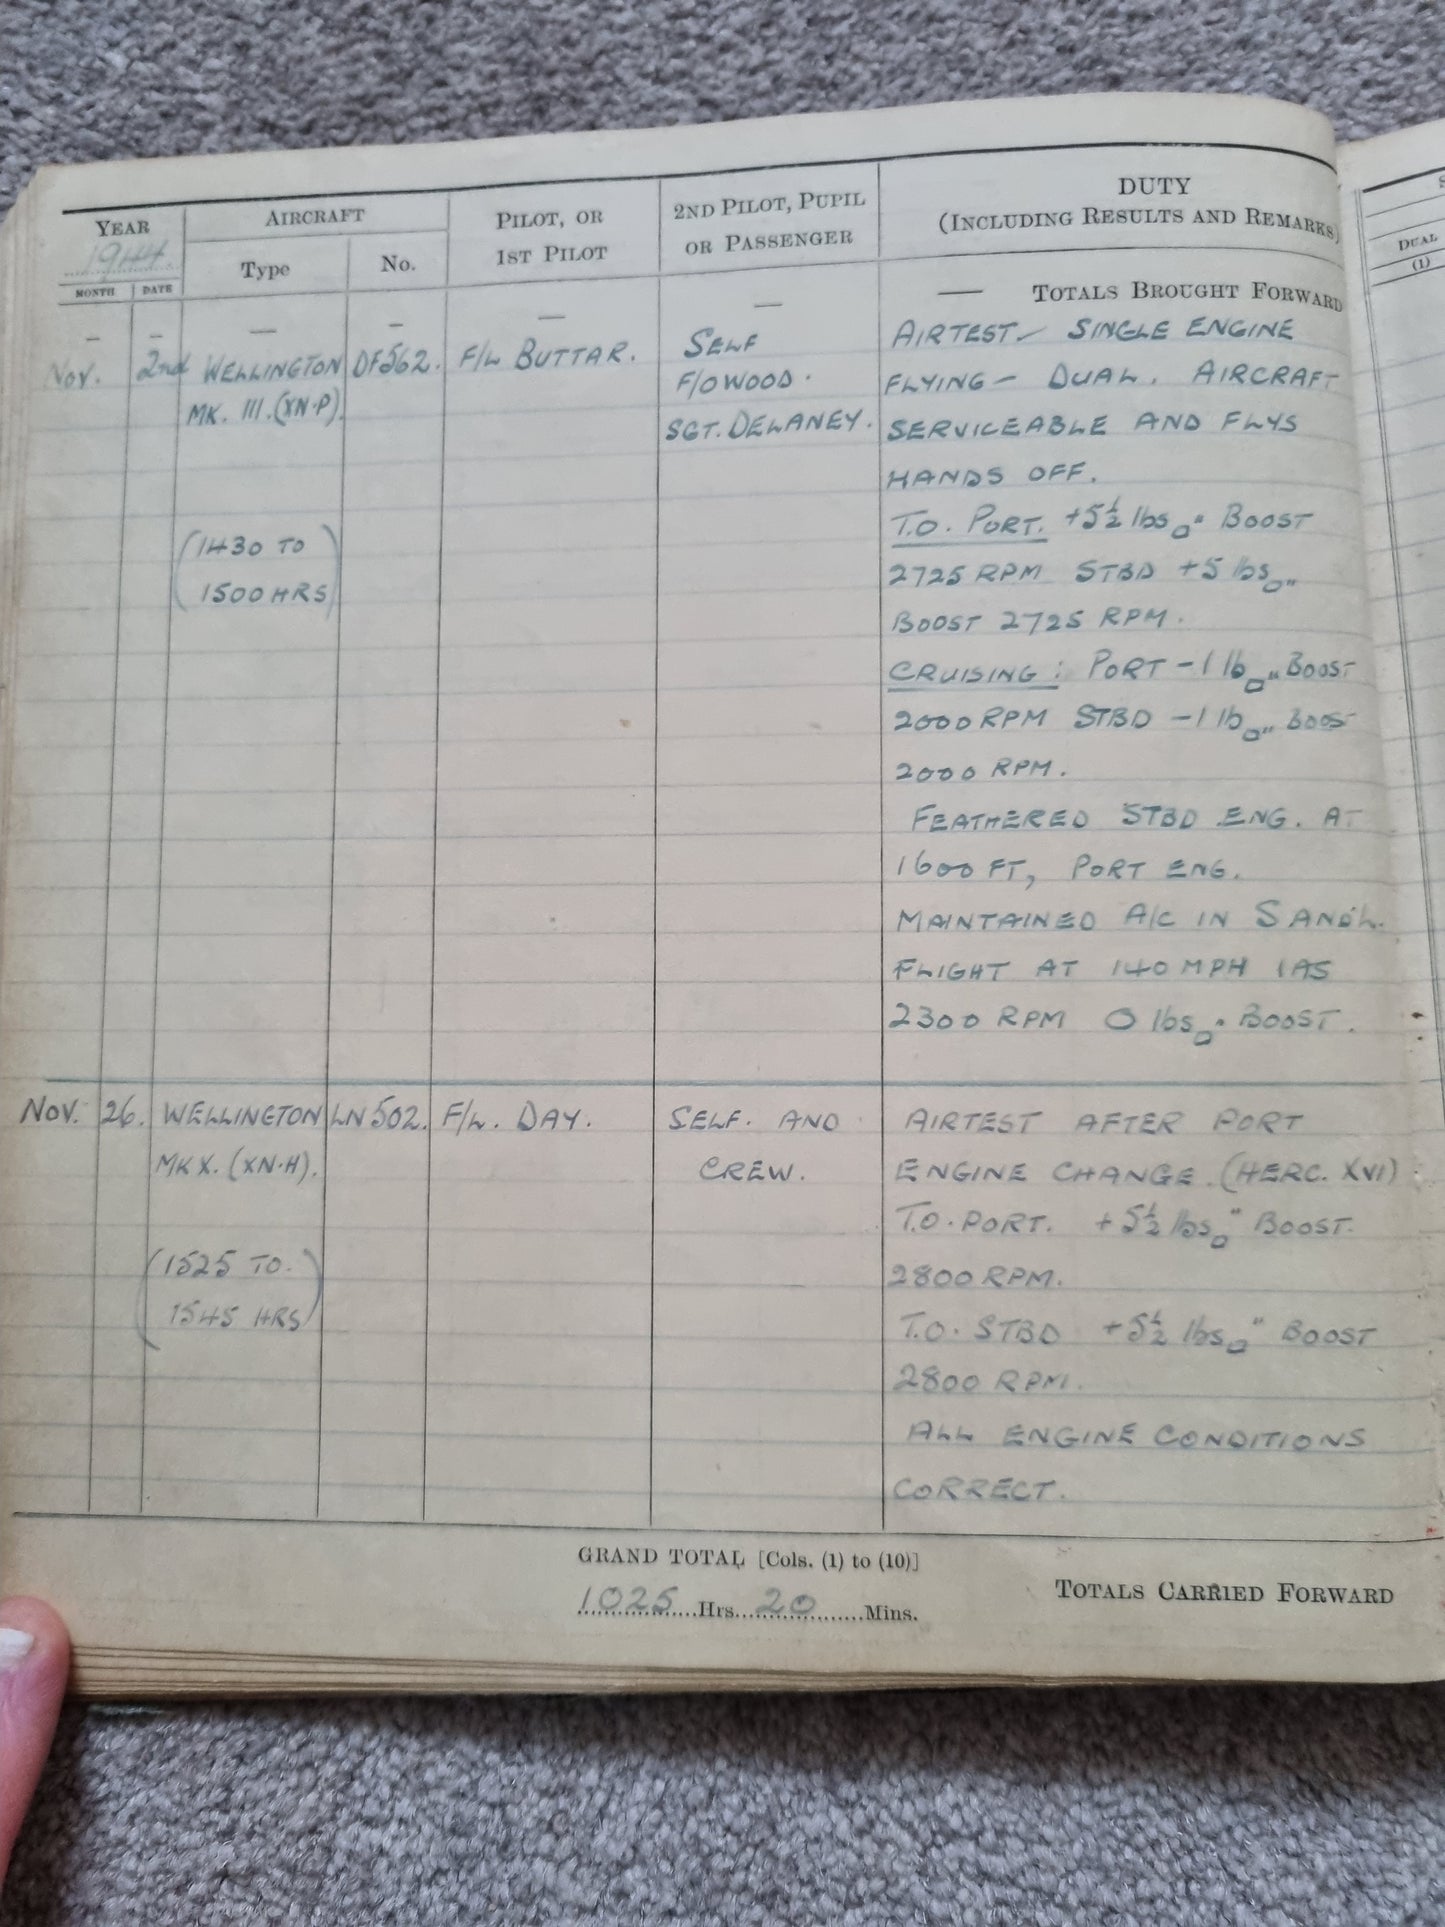 YEAR
1944.
MONTH DATE
AIRCRAFT
Type No.
PILOT, OR
1ST PILOT
2ND PILOT, PUPIL
OR PASSENGER
DUTY
(INCLUDING RESULTS AND REMARKS)
DUAL
(1)
— — — — — — — TOTALS BROUGHT FORWARD
Nov. 2nd WELLINGTON DF562. F/L BUTTAR. SELF AIRTEST – SINGLE ENGINE
MK. III. (XN·P). F/O WOOD. FLYING – DUAL. AIRCRAFT
SGT. DELANEY. SERVICEABLE AND FLYS
HANDS OFF.
(1430 TO T.O. PORT. +5½ lbs□" BOOST
1500 HRS) 2725 RPM STBD +5 lbs□"
BOOST 2725 RPM.
CRUISING: PORT –1 lb□" BOOST
2000 RPM STBD –1 lb□" BOOST
2000 RPM.
FEATHERED STBD ENG. AT
1600 FT, PORT ENG.
MAINTAINED A/C IN S AND L.
FLIGHT AT 140 MPH IAS
2300 RPM 0 lbs□" BOOST.
Nov. 26. WELLINGTON LN502. F/L. DAY. SELF. AND AIRTEST AFTER PORT
MK X. (XN·H). CREW. ENGINE CHANGE. (HERC. XVI)
T.O. PORT. +5½ lbs□" BOOST.
(1525 TO. 2800 RPM.
1545 HRS) T.O. STBD +5½ lbs□" BOOST
2800 RPM.
ALL ENGINE CONDITIONS
CORRECT.
GRAND TOTAL [Cols. (1) to (10)]
1025 Hrs. 20 Mins.
TOTALS CARRIED FORWARD